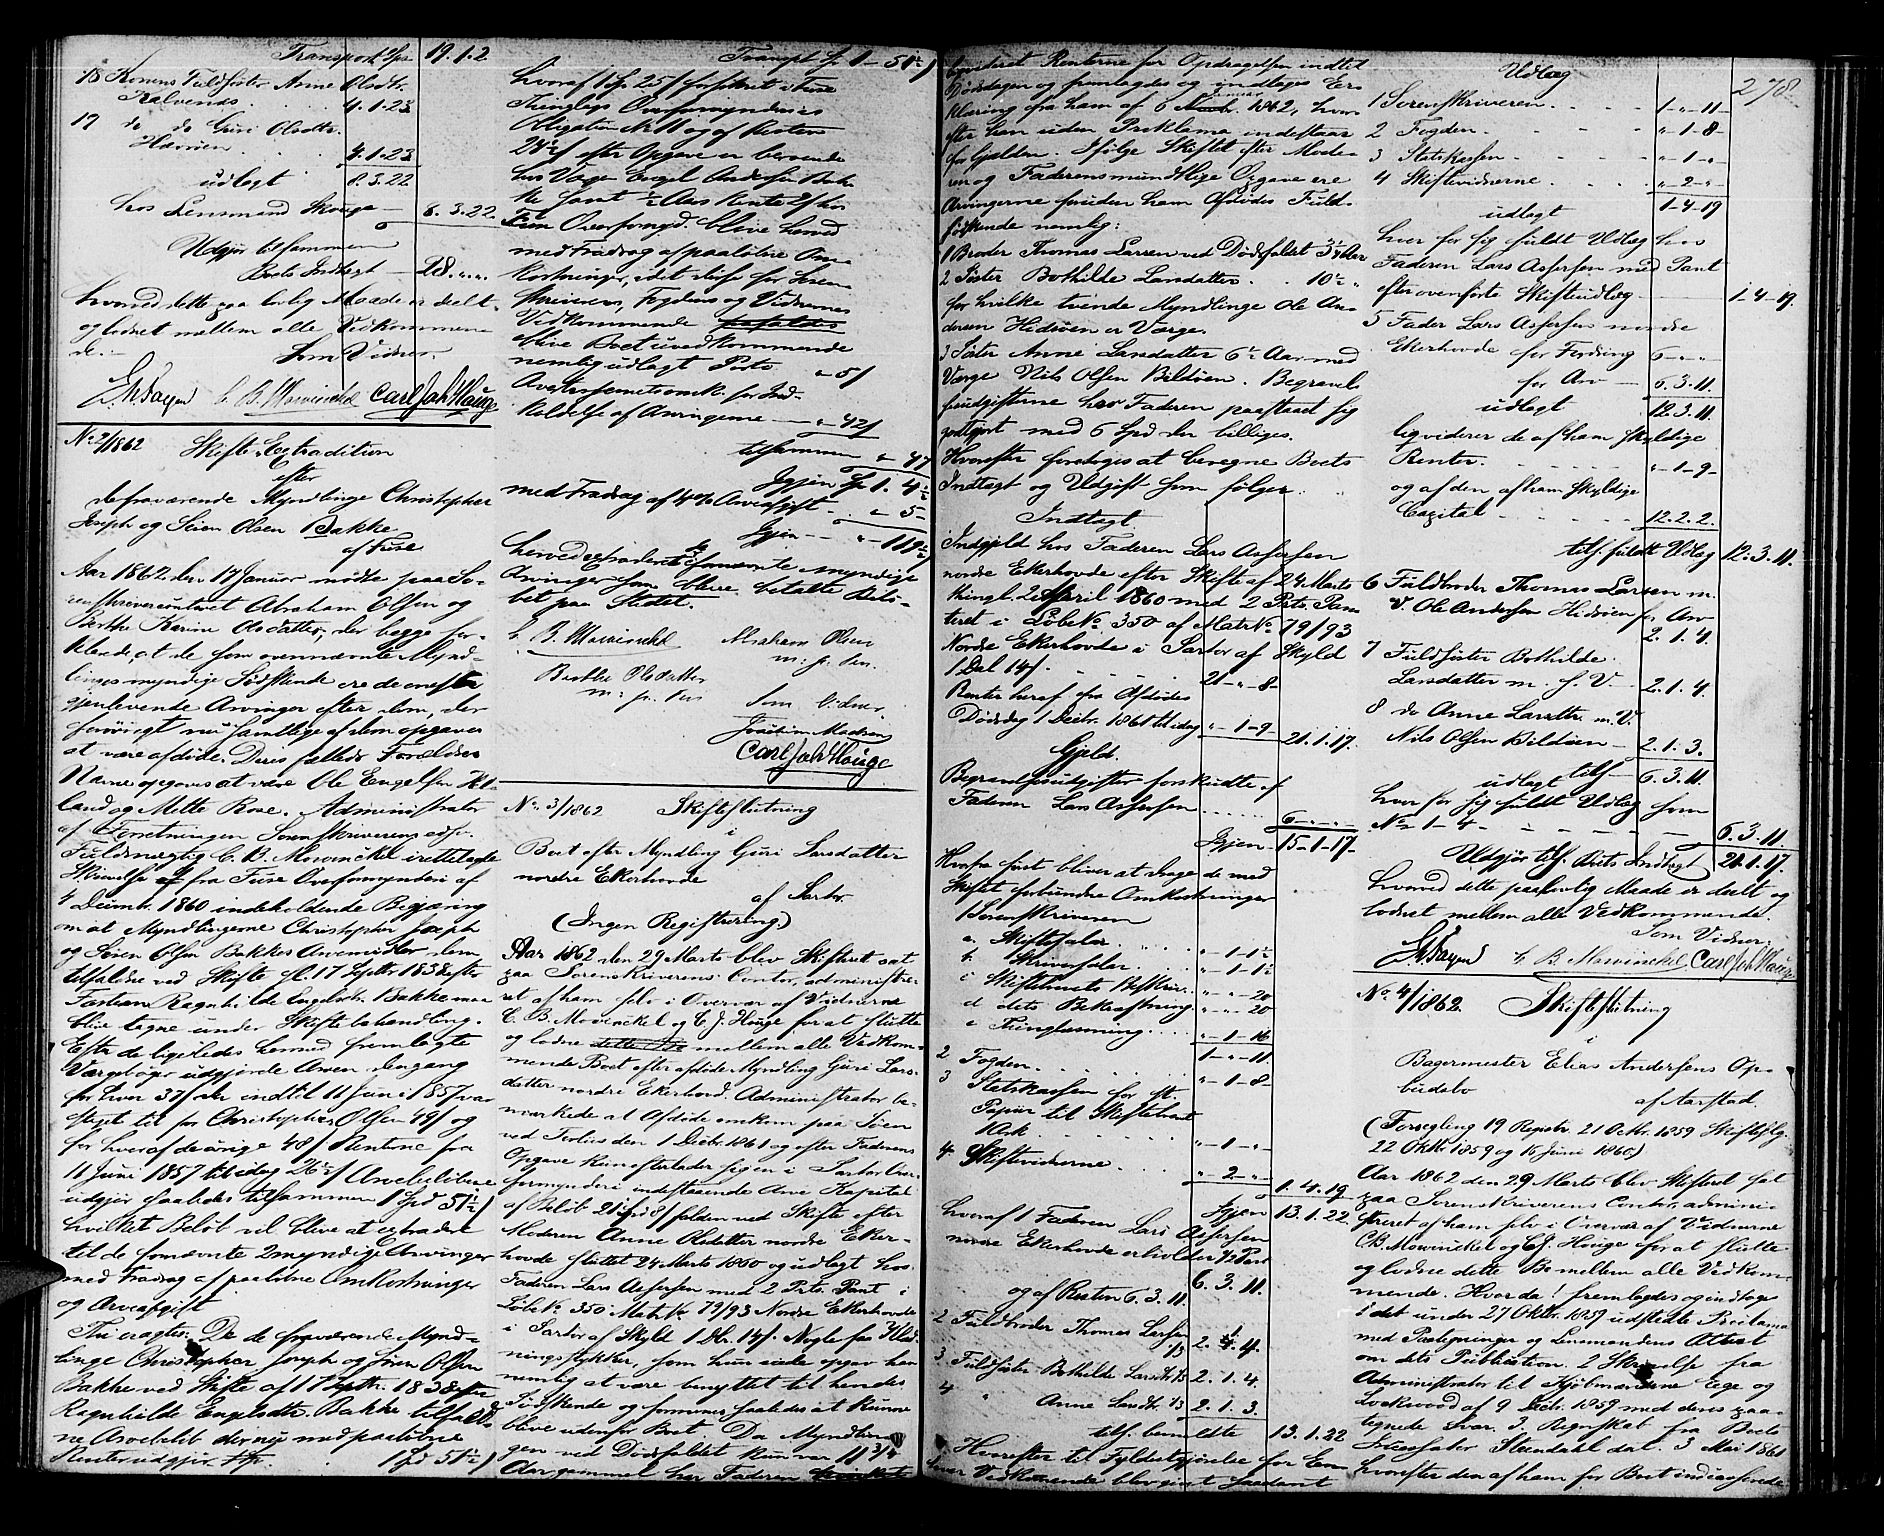 Transport Spd 19.1.2
18 Konens Fuldsøster Anne Olsdtr.
Kalvenæs 4.1.23
19 do do Guri Olsdtr.
4.1.23
udlagt 8.3.22
hos Lensmand Skouge 8.3.22
Udgjør tilsammen
Boets Indtægt 28.
hvormed dette paa lovlig Maade er deelt
og lodnet mellem alle Vedkommen
de.
Som Vidner.
C. B. Mowinckel Carl Joh Houge
No 2/1862 Skifte Extradition
efter
de fraværende Myndlinge Christopher
Joseph og Søren Olsen Bakke
af Fuse
Aar 1862 den 17 Januar mødte paa So-
renskrivercontoiret Abraham Olsen og
Berthe Karine Olsdatter, der begge for-
klarede, at de som ovennævnte Mynd-
linges myndige Sødskende ere de eneste
gjenlevende Arvinger efter dem, der
forøvrigt nu samtlige af dem opgaves
at være afdøde. Deres fælleds Forældres
Navne opgaves at være Ole Engelsen
og Mette Administrator
af Forretningen Sorenskriverens edsv.
Fuldmægtig C. B. Mowinckel irettelagde
Skrivelse fra Fuse Overformynderi af
4 Decembr. 1860 indeholdende Begjæring
om at Myndlingerne Christopher Joseph
og Søren Olsen Bakkes Arvemidler, dem
tilfaldne ved Skifte sl. 17 Septbr 1838 efter
Fasteren Regnhilde Engelsdtr. Bakke maa
blive tagne under Skiftebehandling.
Efter de ligeledes hermed fremlagte
Værgebøger udgjorde Arven dengang
for hver 37 indtil 11 Juni 1857 var
steget til for Christopher Olsen 49 og
for hver af de øvrige 48 Renterne fra
11 Juni 1857 til idag 26½ Arvebeløbene
udgjør saaledes tilsammen 1 Spd 51½
hvilket Beløb vil blive at extradere
til de fornævnte 2 myndige Arvinger
med Fradrag af paaløbne Omkostninger
og Arveafgift
Thi eragtes: De de fraværende Mynd-
linge Christopher Joseph og Søren Olsen
Bakke ved Skifte af 17 Septbr. 1838 efter
Regnhilde Engelsdtr. Bakke tilfald-
ne Arvebeløb der nu med paaløbne
Renter udgjør 1 Spd 51½
Transpt Sp. 1 - 51½
hvoraf 1 Sp. 25 forsikret i Fuse
Thinglags Overformynderies
Obligation No 11 og af Resten
24½ efter Opgave er beroende
hos Værge Engel Andersen Bak-
ke samt ½ Aars Rente 2 hos
Fuse Overformynd. blive herved
med Fradrag af paaløbne Om-
kostninger, idet disse for Soren-
skriverens, Fogdens og Vidnernes
Vedkommende
blive Boet uvedkommende
nemlig udlagt Porto - 5
Avertissementsomk. for Ind-
kaldelse af Arvingerne - 42
tilsammen - 47
Igjen Sp 1. 4½
med Fradrag af 4% Arveafgift - 5 -
Igjen - - 119½
herved extraderet de fornævnte myndige
Arvinger som bleve betalte Belø-
bet paa Stedet.
C. B. Mowinckel Abraham Olsen
m. p. Pen.
Berthe Olsdatter
m. p. Pen
Som Vidner.
Madsen
Carl Joh Houge
No. 3/1862 Skifteslutning
i
Boet efter Myndling Guri Larsdatter
nordre Ekerhovde
af Sartor
(Ingen Registrering)
Aar 1862 den 29 Marts blev Skifteret sat
paa Sorenskriverens Contor, administre-
ret af ham selv i Overvær af Vidnerne
C. B. Mowinckel og C. J. Houge for at slutte
og lodne mellem alle Vedkom-
mende Boet efter afdøde Myndling Guri Lars-
datter nordre Ekerhovd. Administrator be-
mærkede at Afdøde omkom paa Søen
ved Forlis den 1 Decbr. 1861 og efter Faderens
Opgave kun efterlader sig en i Sartor Over-
formynderi indestaaende Arve Kapital
af Beløb 21 Spd 8 falden ved Skifte efter
Moderen Anne Olsdatter nordre Eker-
hovde sluttet 24 Marts 1860 og udlagt hos
Faderen Lars Assersen med 2 Prts. Pant i
Løbe No. 350 Mat. No. 79/93 Nordre Ekerhovde
i Sartor af Skyld 1 Dlr. 14. Nogle faa Klæd-
ningsstykker, som hun eiede opgav han
nemlig at være benyttet til hendes
Sødskende og formenes saaledes at kunne
blive udenfor Boet. Da Myndlin-
gen ved Dødsfaldet kun var 11 3/4
Aar gammel har Faderen
beregnet Renterne for Opdragelsen indtil
Dødsdagen og fremlagdes og indtoges Er-
klæring fra ham af 6 Januar 1862, hvor-
efter han uden Proklama indestaar
for Gjælden. Ifølge Skiftet efter Mode-
ren og Faderens mundtlige Opgave ere
Arvingerne foruden ham Afdødes Fuld-
sødskende nemlig:
1 Broder Thomas Larsen ved Dødsfaldet 3½ Aar
2 Søster Bothilde Larsdatter . . 10½ "
for hvilke tvende Myndlinge Ole An-
dersen Hidsøen er Værge.
3 Søster Anne Larsdatter 6½ Aar med
Værge Nils Olsen Bildøen. Begravel-
sesudgifterne har Faderen paastaaet sig
godtgjort med 6 Spd der billiges.
Hvorefter foretoges at beregne Boets
Indtægt og Udgift som følger:
Indtægt.
Indgjeld hos Faderen Lars Assersen
nordre Ekerhovde efter Skifte af 24 Marts
thingl. 2 April 1860 med 2 Prts. Pan-
teret i Løbe No. 350 af Matr No 79/93
Nordre Ekerhovde i Sartor af Skyld
1 Dal 14 . . . 21 - " - 8 -
Renter heraf fra Afdødes
Dødsdag 1 Decbr. 1861 til idag " - 1 - 9 21. 1. 17.
Gjeld.
Begravelsesudgifter forskudte af
Faderen Lars Assersen . . . . 6 - " -
Igjen 15 - 1 - 17 -
Hvorfra først bliver at drage de med
Skiftet forbundne Omkostninger
1 Sorenskriveren
a. Skiftesalær. . . " - 1 - 1½
b. Skriversalær . . . " - 1 - 1½
c Skiftebrevets Beskriv. " - " - 20
d dets Bekræftning " - " - 20
e Thinglæsning . . . " - 1 - 16
1 - " - 11
2 Fogden . . . " - 1 - 8 -
3 Statskassen for st.
Papir til Skiftebrevet
1 Ark . . . " - 1 - "
4 Skiftevidnerne . . . " - 2 - " 1. 4. 19
Igjen 13. 1. 22.
hvoraf 1 Faderen Lars Assersen
nordre Ekerhovde erholder ½ Part
6. 3. 11.
og af Resten 6. 3. 11.
2 Fuldbroder Thomas Larsen
1/3 2. 1. 4.
3 Fuldsøster Bothilde Larsdtr. 1/3 2. 1. 4.
4 " Anne Larsdtr. 1/3 2. 1. 3.
tilf. bemeldte 13. 1. 22
Herefter til Fyldestgjørelse for En-
hver Vedkommende blev gjort saadant
Udlæg 278
1 Sorenskriveren . . . 1 - " - 11 -
2 Fogden . . . " - 1 - 8 -
3 Statskassen . . . " - 1 - "
4 Skiftevidnerne . . . " - 2 - "
udlagt 1 - 4 - 19
hver for sig fuldt Udlæg hos
Faderen Lars Assersen med Pant
efter ovenførte Skifteudlæg 1 - 4 - 19.
5 Fader Lars Assersen nordre
Ekerhovde for Fordring 6 - " - "
for Arv 6. 3. 11.
udlagt 12. 3. 11.
ligviderer de af ham skyldige
Renter . . . " - 1 - 9 -
og af den af ham skyldige
Capital . . . 12. 2. 2.
tilf. fuldt Udlæg 12. 3. 11.
6 Fuldbroder Thomas Larsen m.
V. Ole Andersen Hidsøen for Arv
2. 1. 4.
7 Fuldsøster Bothilde
Larsdatter m. s. V. 2. 1. 4.
8 do Anne Larsdtr. m. V.
Nils Olsen Bildøen 2. 1. 3.
udlagt tilf. 6. 3. 11
hver for sig fuldt Udlæg som
No 1 - 4 - 6. 3. 11
Udgjør tilf. Boets Indtægt 21. 1. 17.
hvormed dette paa lovlig Maade er deelt og
lodnet mellem alle Vedkommende.
Som Vidner.
C. B. Mowinckel Carl Joh Houge
No. 4/1862. Skifteslutning
i
Bagermester Elias Andersens Op-
budsbo
af Aarstad.
(Forsegling 19 Registr. 21 Octbr. 1859 Skiftesl.
22 Oktbr 1859 og 15 Juni 1860)
Aar 1862 den 29 Marts blev Skifteret sat
paa Sorenskriverens Contor, admini-
streret af ham selv i Overvær af Vidnerne
C. B. Mowinckel og C. J. Houge for at slutte
og lodne dette Bo mellem alle Vedkom-
mende. Hvorda 1 fremlagdes og indtoges
det under 27 Oktbr. 1859 udstedte Proklama
med Paategninger og Lensmandens Attest
om dets Publication. 2 Skrivelse fra
Administrator til Kjøbmændene Ege og
Lockwood af 9 Decbr. 1859 med deres paa-
tegnede Svar. 3. Regnskab fra Boets
Incassator Stendahl dat. 3 Mai 1861
hvorefter den af ham for Boet indcasserede